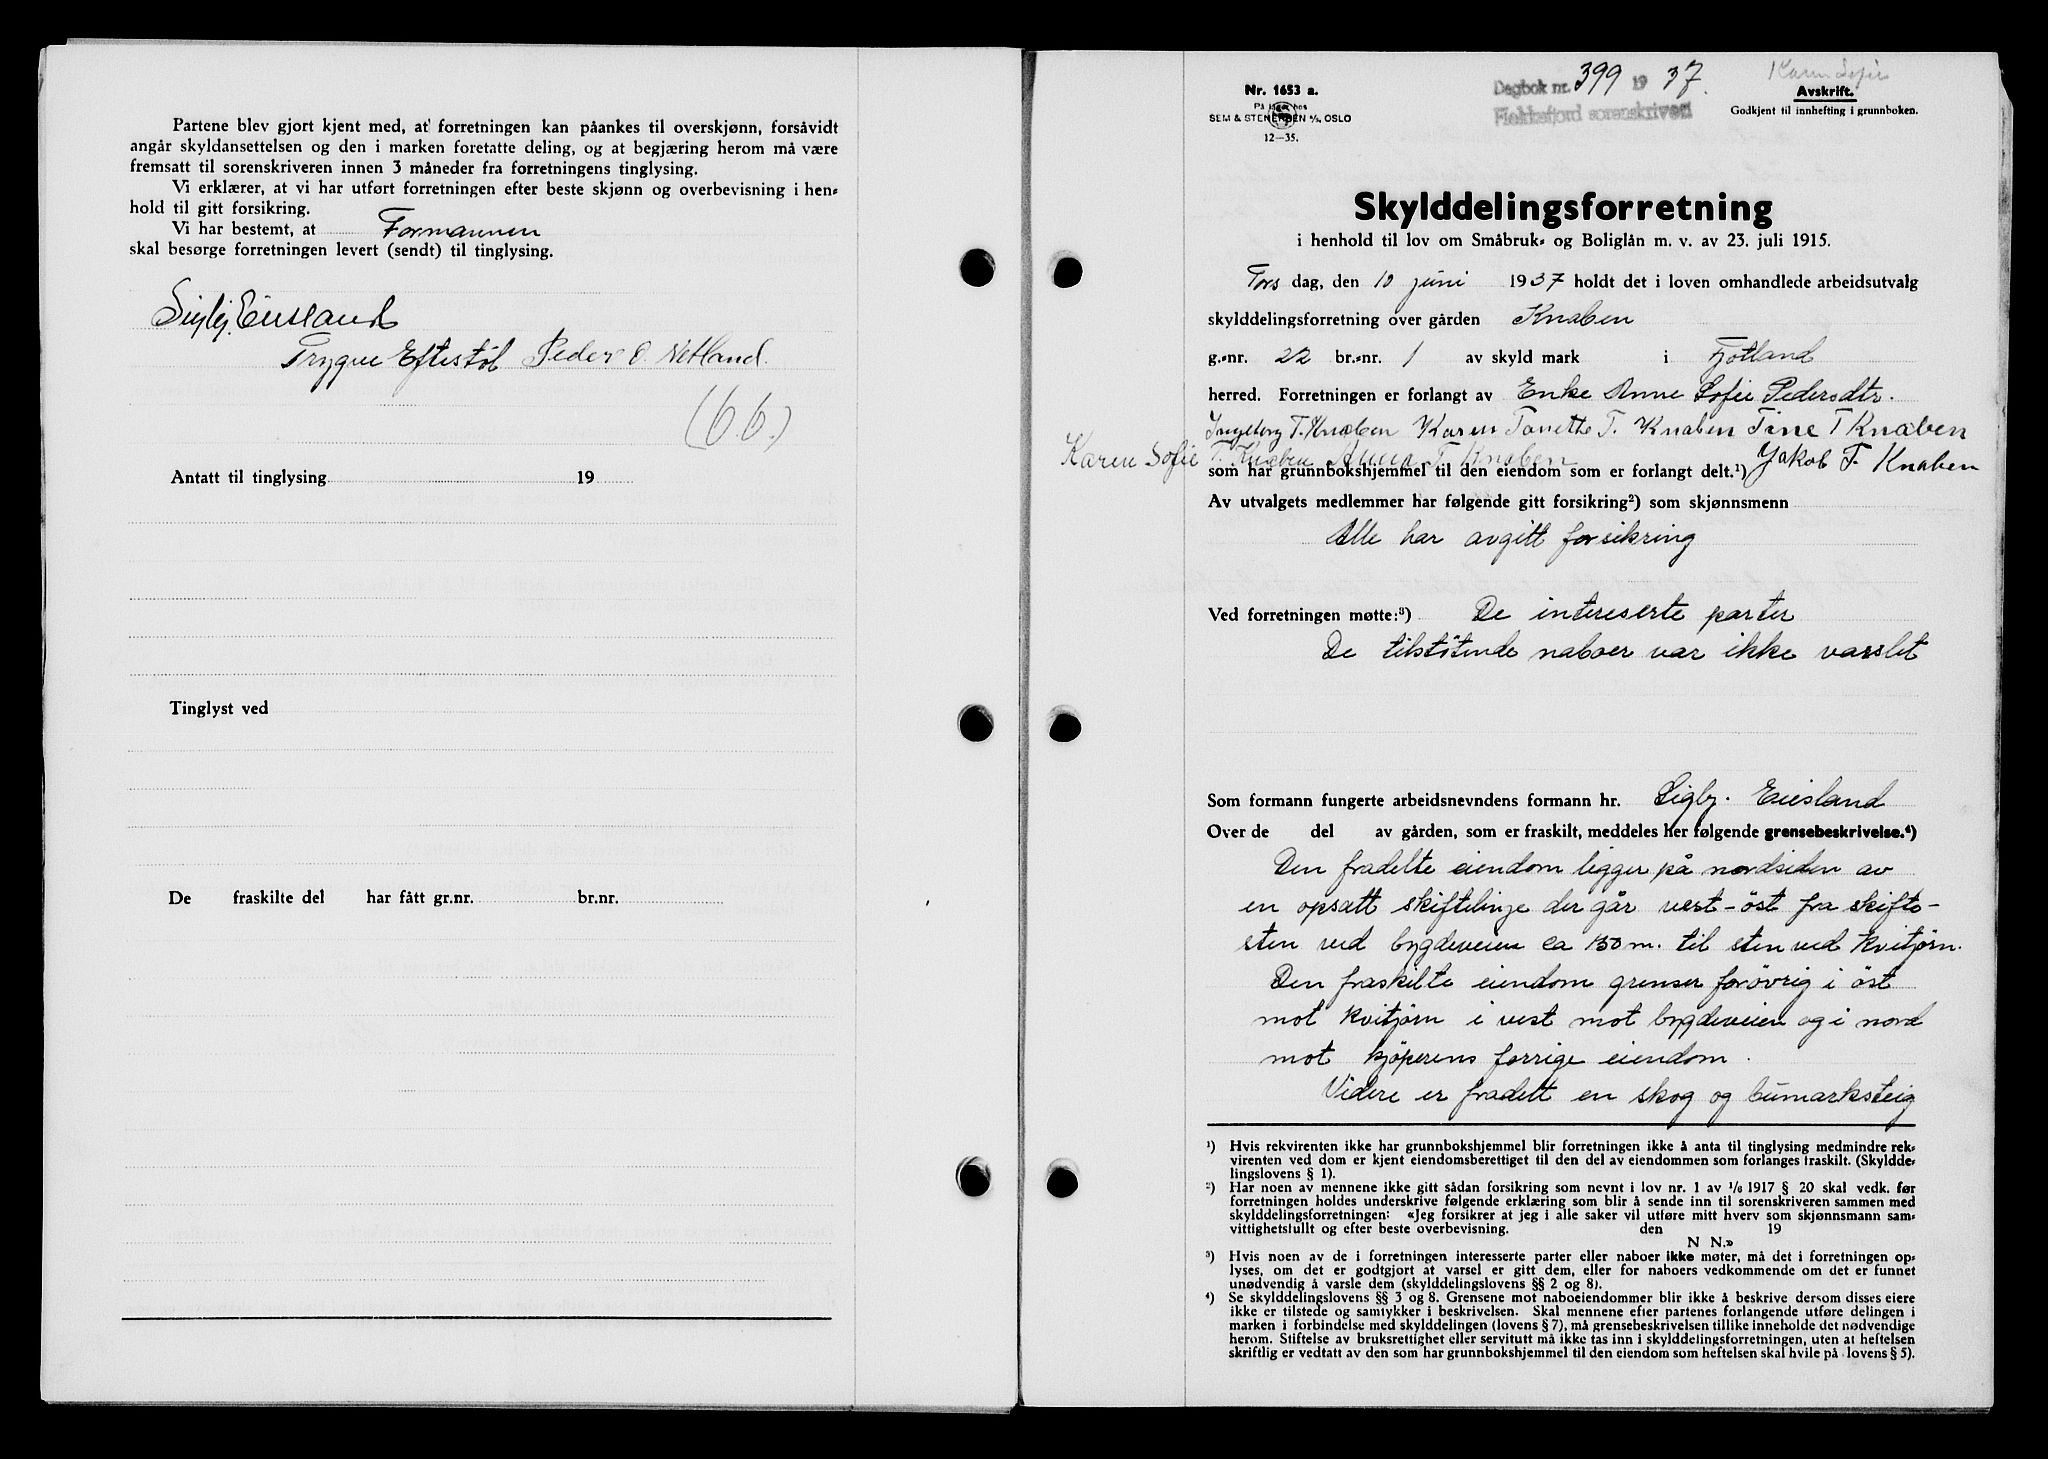 Partene blev gjort kjent med, at forretningen kan påankes til overskjønn, forsåvidt
angår skyldansettelsen og den i marken foretatte deling, og at begjæring herom må være
fremsatt til sorenskriveren innen 3 måneder fra forretningens tinglysing.
Vi erklærer, at vi har utført forretningen efter beste skjønn og overbevisning i hen-
hold til gitt forsikring.
Vi har bestemt, at Formannen
skal besørge forretningen levert (sendt) til tinglysing.
Sigbj. Eiesland
Trygve Eftestöl Peder O. Netland.
(6.6.)
Antatt til tinglysing 19
Tinglyst ved
De fraskilte del har fått gr.nr. br.nr.
Nr. 1653 a.
På lager hos
SEM & STENERSEN A/S, OSLO
12—35.
Dagbok nr. 399 19 37.
Flekkefjord sorenskriveri
Karen Sofie
Avskrift.
Godkjent til innhefting i grunnboken.
Skylddelingsforretning
i henhold til lov om Småbruk- og Boliglån m. v. av 23. juli 1915.
Tors dag, den 10 juni 1937 holdt det i loven omhandlede arbeidsutvalg
skylddelingsforretning over gården Knaben
g.-nr. 22 br.-nr. 1 av skyld mark i Fjotland
herred. Forretningen er forlangt av Enke Anne Sofie Pedersdtr.
Ingeborg T. Knaben Karen Tonette T. Knaben Tine T Knaben
Karen Sofie T. Knaben Anna T. Knaben Jakob T. Knaben
som har grunnbokshjemmel til den eiendom som er forlangt delt.¹)
Av utvalgets medlemmer har følgende gitt forsikring²) som skjønnsmenn
Alle har avgitt forsikring
Ved forretningen møtte:³) De intereserte parter
De tilstötende naboer var ikke varslet
Som formann fungerte arbeidsnevndens formann hr. Sigbj. Eiesland
Over de del av gården, som er fraskilt, meddeles her følgende grensebeskrivelse.⁴)
Den fradelte eiendom ligger på nordsiden av
en opsatt skiftelinje der går vest-öst fra skifte-
sten ved bygdeveien ca 130 m. til sten ved Kvitjörn.
Den fraskilte eiendom grenser forövrig i öst
mot Kvitjörn i vest mot bygdeveien og i nord
mot kjöperens forrige eiendom.
Videre er fradelt en skog og bumarksteig
¹) Hvis rekvirenten ikke har grunnbokshjemmel blir forretningen ikke å anta til tinglysing medmindre rek-
virenten ved dom er kjent eiendomsberettiget til den del av eiendommen som forlanges fraskilt. (Skyldde-
lingslovens § 1).
²) Har noen av mennene ikke gitt sådan forsikring som nevnt i lov nr. 1 av 1/6 1917 § 20 skal vedk. før
forretningen holdes underskrive følgende erklæring som blir å sende inn til sorenskriveren sammen med
skylddelingsforretningen: «Jeg forsikrer at jeg i alle saker vil utføre mitt hverv som skjønnsmann sam-
vittighetsfullt og efter beste overbevisning. den 19
N N.»
³) Hvis noen av de i forretningen interesserte parter eller naboer ikke møter, må det i forretningen op-
lyses, om det er godtgjort at varsel er gitt dem, eller for naboers vedkommende om det er funnet
unødvendig å varsle dem (skylddelingslovens §§ 2 og 8).
⁴) Se skylddelingslovens §§ 3 og 8. Grensene mot naboeiendommer blir ikke å beskrive dersom disses eiere
ikke er tilstede og samtykker i beskrivelsen. Skal mennene efter partenes forlangende utføre delingen i
marken i forbindelse med skylddelingen (lovens § 7), må grensebeskrivelsen tillike inneholde det nødvendige
herom. Stiftelse av bruksrettighet eller servitutt må ikke tas inn i skylddelingsforretningen, uten at heftelsen
skriftlig er vedtatt av den som har grunnbokshjemmel til den eiendom som heftelsen skal hvile på lovens § 5).